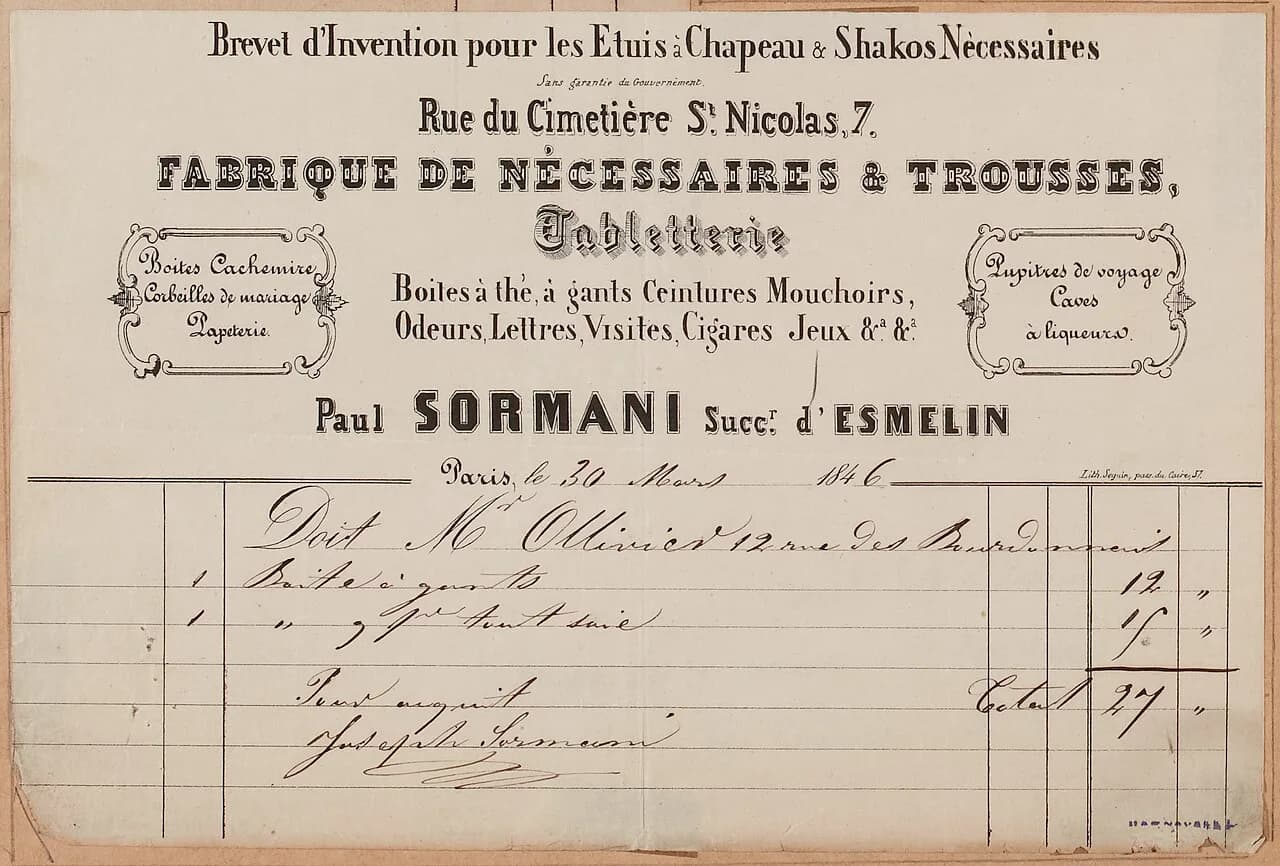 Brevet d'Invention pour les Etuis à Chapeau & Shakos Nècessaires
Sans garantie du Gouvernèment.
Rue du Cimetière St. Nicolas, 7.
FABRIQUE DE NÉCESSAIRES & TROUSSES,
Tabletterie
Boites Cachemire
Corbeilles de mariage
Papeterie.
Boites à thé, à gants Ceintures Mouchoirs,
Odeurs, Lettres, Visites, Cigares Jeux &a. &a.
Pupitres de voyage
Caves
à liqueurs.
Paul SORMANI Succr. d'ESMELIN
Paris, le 30 Mars 1846
Lith. Seguin, pas. du Caire, 57.
Doit Mr Ollivier 12 rue des Bourdonnais
1 Boite à gants 12 "
1 " tout soie 15 "
Pour acquit Total 27 "
Joseph Sormani